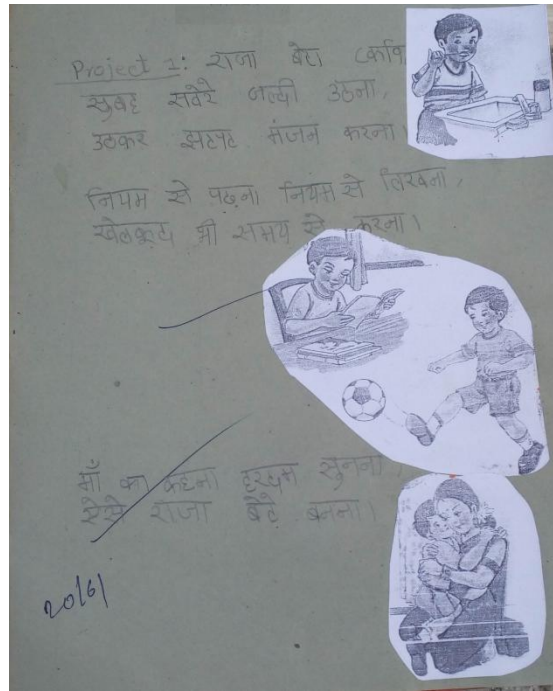 Project 1: राजा बेटा (कवि
सुबह सवेरे जल्दी उठना,
उठकर झटपट मंजन करना।
नियम से पढ़ना नियम से लिखना,
खेलकूद भी समय से करना।
माँ का कहना हरदम सुनना,
ऐसे राजा बेटे बनना।
20/6/